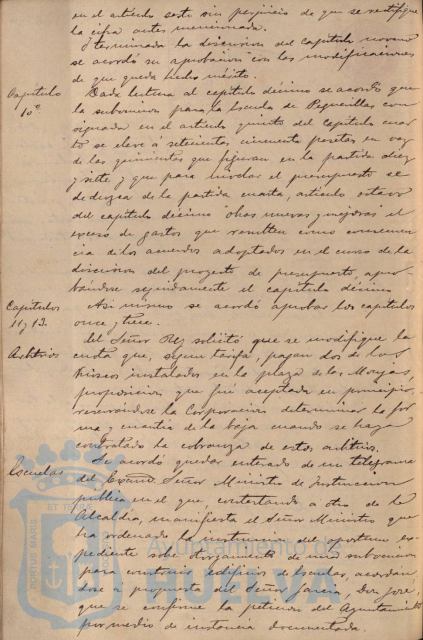 en el artículo sesto sin perjuicio de que se rectifique
la cifra antes mencionada.
Terminada la discusion del capitulo noveno
se acordó su aprobacion con las modificaciones
de que queda hecho mérito.
Capitulo
10º
Dada lectura al capitulo décimo se acordó que
la subvencion para la Escuela de Pequeñillos con
signada en el artículo quinto del Capitulo cuar
to se eleve a setecientas cincuenta pesetas en vez
de las quinientas que figuran en la partida diez
y siete y que para nivelar el presupuesto se
deduzca de la partida cuarta, artículo octavo
del capitulo décimo "obras nuevas y mejoras" el
exceso de gastos que resulten como consecuen
cia de los acuerdos adoptados en el curso de la
discusion del proyecto de presupuesto, apro-
bándose seguidamente el capitulo décimo
Capitulos
11 y 13.
Asi mismo se acordó aprobar los capitulos
once y trece.
Arbitrios
El Señor Rey solicitó que se modifique la
cuota que, segun tarifa, pagan dos de los
Kioscos instalados en la plaza de las Monjas,
proposicion que fué aceptada en principio,
reservándose la Corporacion determinar la for
ma y cuantía de la baja cuando se haya
contratado la cobranza de estos arbitrios.
Escuelas
Se acordó quedar enterado de un telegrama
del Excmo. Señor Ministro de Instruccion
publica en el que, contestando a otro de la
Alcaldía, manifiesta el Señor Ministro que
ha ordenado la instruccion del oportuno ex-
pediente sobre otorgamiento de una subvencion
para construir edificios de Escuelas, acordán
dose a propuesta del Señor Garcia, Don José,
que se confirme la peticion del Ayuntamiento
por medio de instancia documentada.
PORTUS MARIS
ET TE
Ayuntamiento de
HUELVA